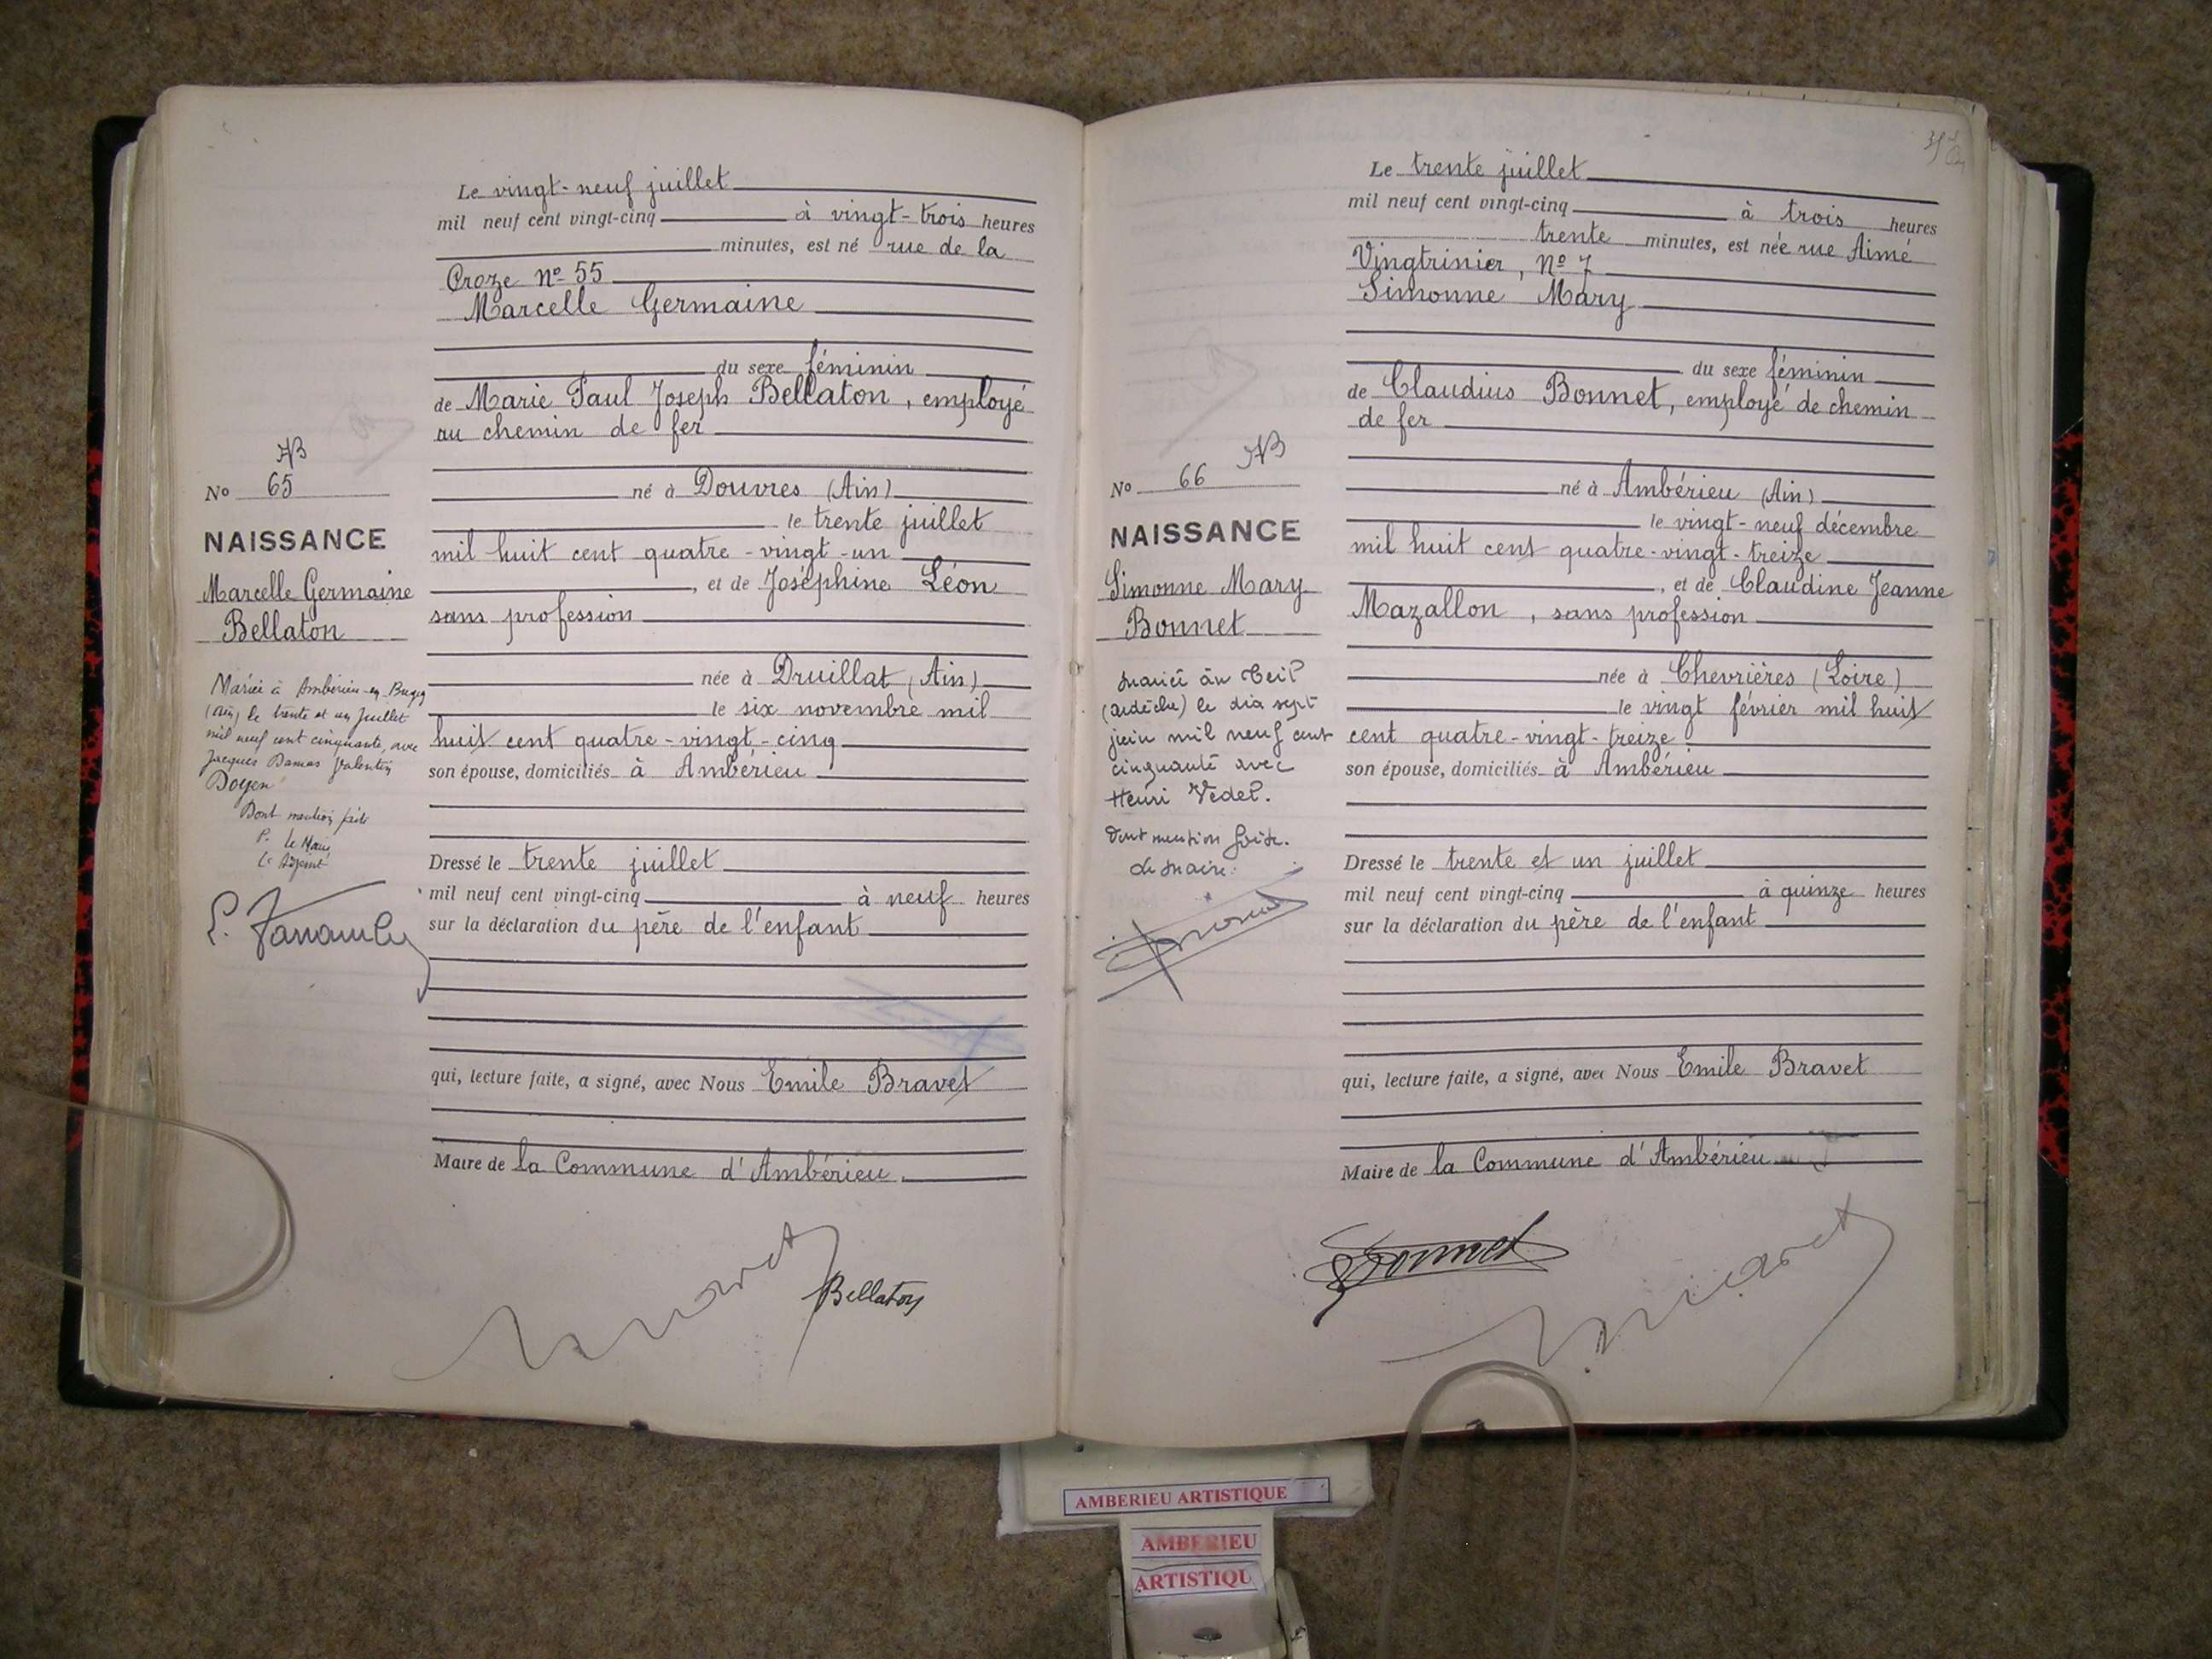 Le vingt-neuf juillet
mil neuf cent vingt-cinq à vingt-trois heures
minutes, est né rue de la
Croze Nº 55
Marcelle Germaine
du sexe féminin
de Marie Paul Joseph Bellaton, employé
au chemin de fer
né à Douvres (Ain)
le trente juillet
mil huit cent quatre-vingt-un
, et de Joséphine Léon
sans profession
née à Druillat (Ain)
le six novembre mil
huit cent quatre-vingt-cinq
son épouse, domiciliés à Ambérieu
Dressé le trente juillet
mil neuf cent vingt-cinq à neuf heures
sur la déclaration du père de l'enfant
qui, lecture faite, a signé, avec Nous Emile Bravet
Maire de la Commune d'Ambérieu.
Bellaton
No 65
NAISSANCE
Marcelle Germaine
Bellaton
Mariée à Ambérieu-en-Bugey
(Ain) le trente et un Juillet
mil neuf cent cinquante, avec
Jacques Damas Valentin
Doyen
Dont mention faite
P. Le Maire
L'Adjoint
Le trente juillet
mil neuf cent vingt-cinq à trois heures
trente minutes, est née rue Aimé
Vingtrinier, Nº 7
Simonne Mary
du sexe féminin
de Claudius Bonnet, employé de chemin
de fer
né à Ambérieu (Ain)
le vingt-neuf décembre
mil huit cent quatre-vingt-treize
, et de Claudine Jeanne
Mazallon, sans profession
née à Chevrières (Loire)
le vingt février mil huit
cent quatre-vingt-treize
son épouse, domiciliés à Ambérieu
Dressé le trente et un juillet
mil neuf cent vingt-cinq à quinze heures
sur la déclaration du père de l'enfant
qui, lecture faite, a signé, avec Nous Emile Bravet
Maire de la Commune d'Ambérieu
Bonnet
Bravet
No 66
NAISSANCE
Simonne Mary
Bonnet
Mariée au Teil
(Ardèche) le dix sept
juin mil neuf cent
cinquante avec
Henri Vedel.
Dont mention faite.
Le Maire:
AMBERIEU ARTISTIQUE
AMBERIEU
ARTISTIQU